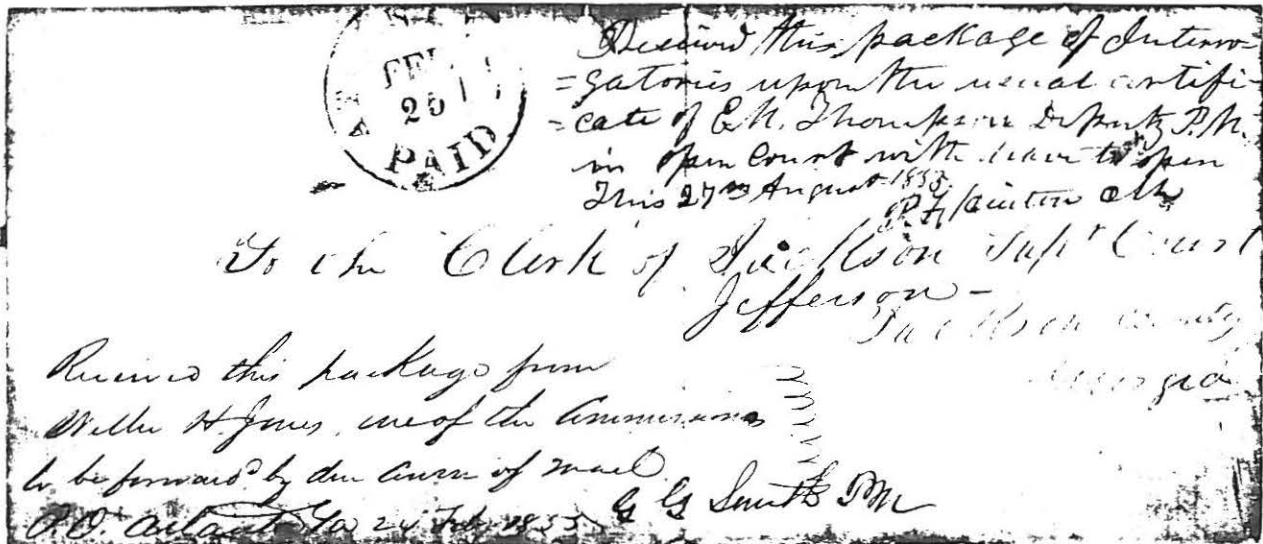 FEB
25
PAID
Received this package of Interro=
=gatories upon the usual certifi=
=cate of E. M. Thompson Deputy P.M.
in open Court with leave to open
This 27th August 1855
P. F. Hinton Clk
To the Clerk of Jackson Supr Court
Jefferson -
Jackson County
Georgia
Received this package from
H. Jones, one of the Commissioners
to be forward'd by due course of mail
P.O. Atlanta Ga 24 Feb 1855
G G Smith PM